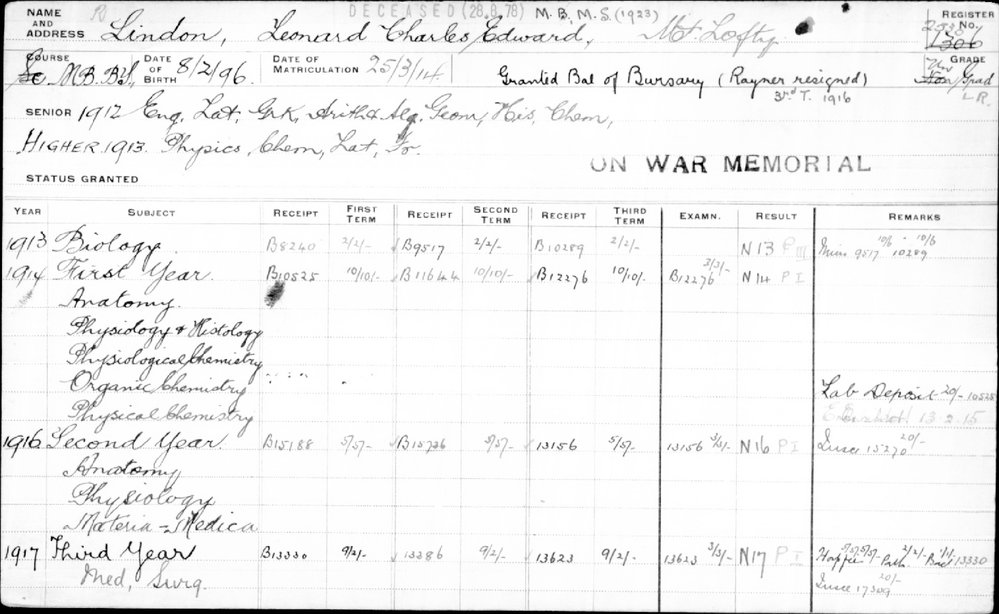 DECEASED (28.8.78) M.B., M.S. (1923)
NAME AND ADDRESS R Lindon, Leonard Charles Edward, Mt. Lofty REGISTER No. 1306
COURSE Sc. M.B. B.S., DATE OF BIRTH 8/2/96. DATE OF MATRICULATION 25/3/14 Granted Bal of Bursary (Rayner resigned) GRADE Grad
3rd T. 1916 L R.
SENIOR 1912 Eng, Lat, Grk, Arith & Alg. Geom, His, Chem,
HIGHER 1913. Physics, Chem, Lat, Fr.
ON WAR MEMORIAL
STATUS GRANTED
YEAR SUBJECT RECEIPT FIRST TERM RECEIPT SECOND TERM RECEIPT THIRD TERM EXAMN. RESULT REMARKS
1913 Biology B8240 2/2/- B9517 2/2/- B10289 2/2/- N13 P III 9517 10/6 - 10289 10/6
1914 First Year. B10525 10/10/- B11644 10/10/- B12276 10/10/- B12276 3/3/- N14 P I
Anatomy.
Physiology & Histology
Physiological Chemistry
Organic Chemistry
Lab Deposit 20/- 10525
Physical Chemistry 13-2-15
1916 Second Year. B15188 5/57- B15736 5/57- 13156 5/57- 13156 3/3/- N16 P I 15270 20/-
Anatomy
Physiology
Materia-Medica
1917 Third Year B13330 9/2/- 13386 9/2/- 13623 9/2/- 13623 3/3/- N17 P I Path. 2/2/- Bact 1/1/- 13330
Med, Surg. 17349 20/-